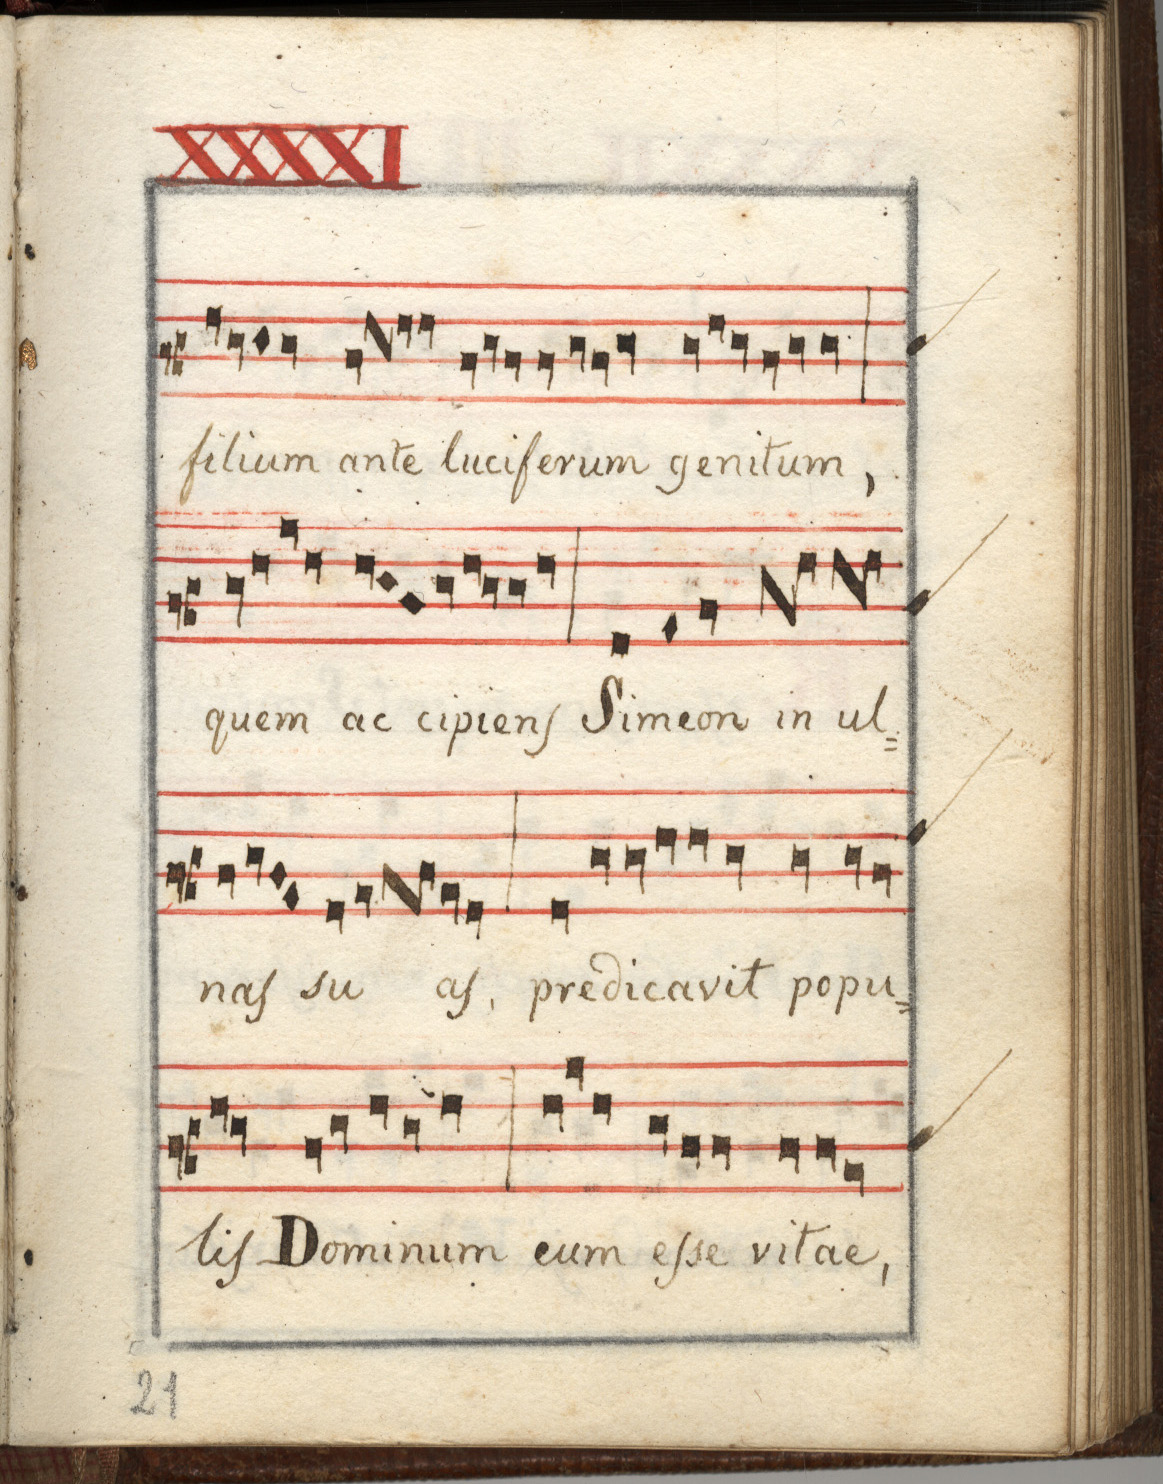 XXXXI
filium ante luciferum genitum,
quem ac cipienſ Simeon in ul=
naſ su aſ, predicavit popu=
liſ Dominum eum eſse vitae,
21